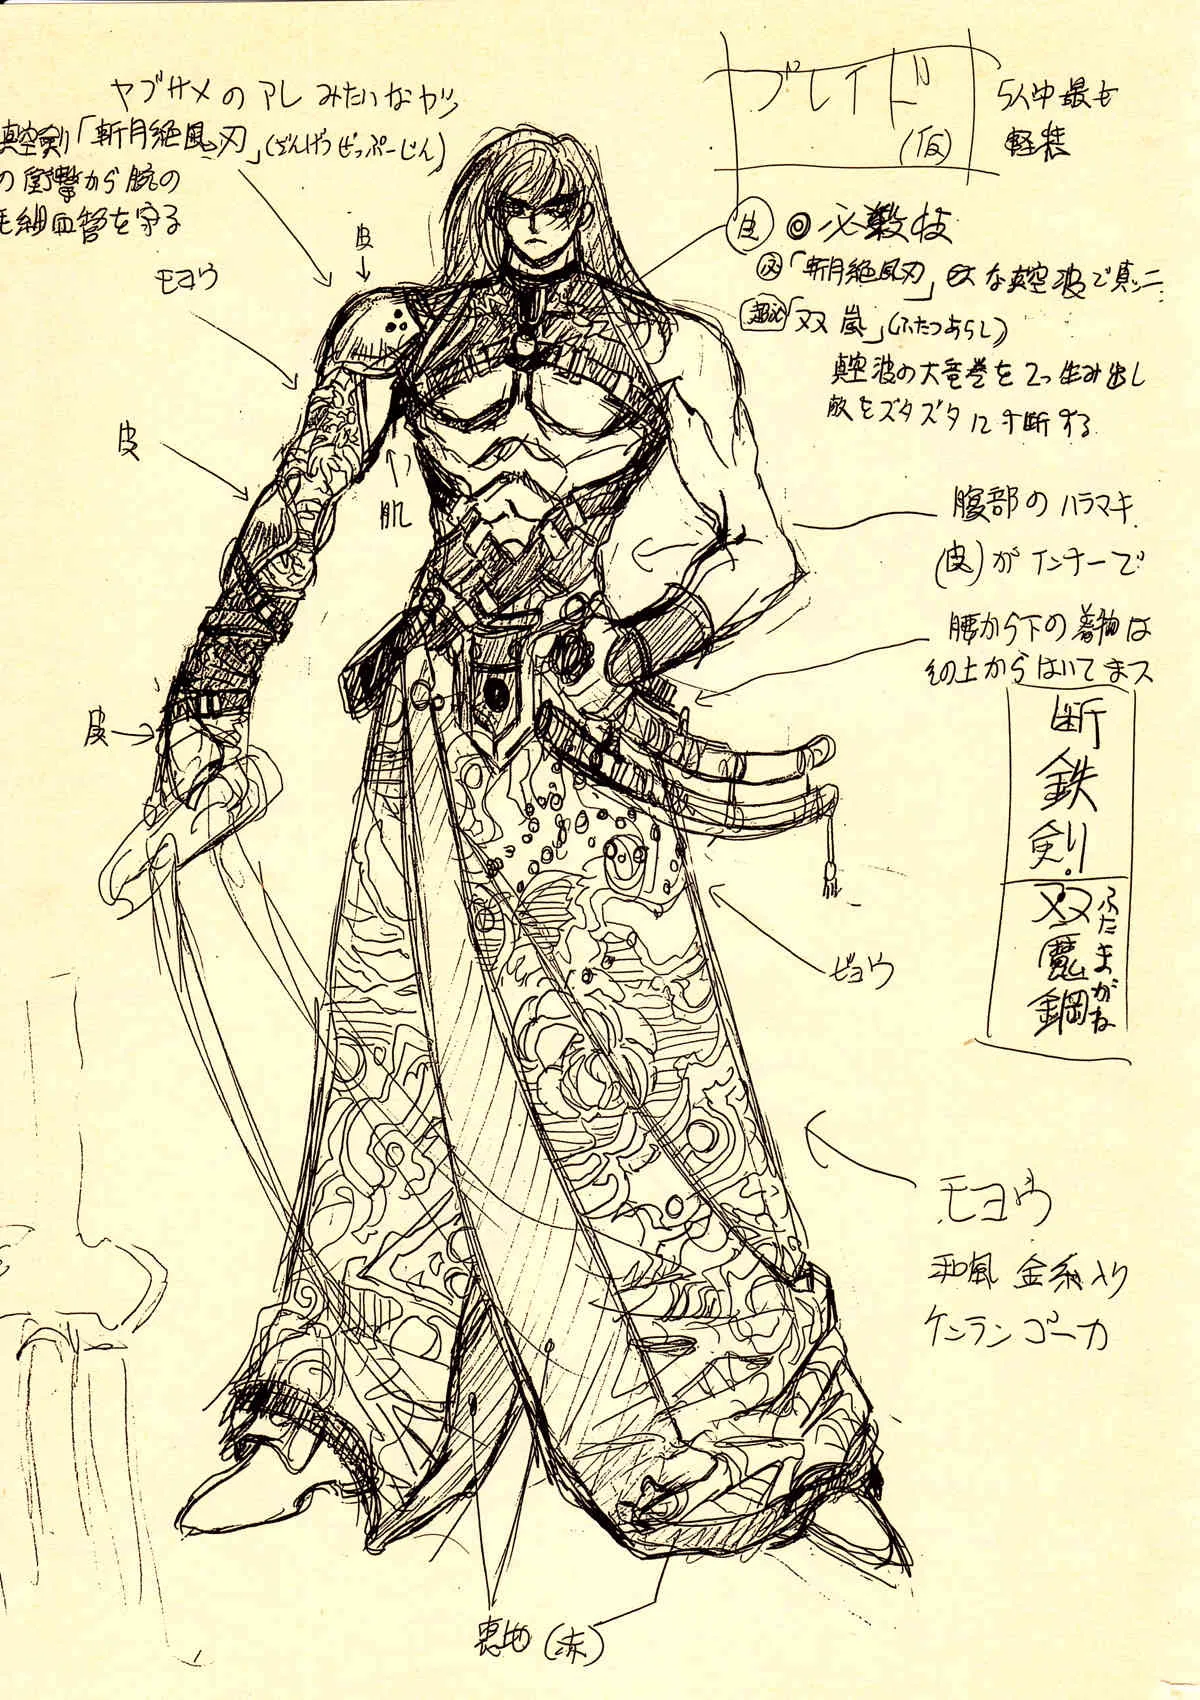 ブレイド
(仮)
5人中最も
軽装
ヤブサメのアレみたいなヤツ
真空剣「斬月絶風刃」(ざんげつぜっぷーじん)
の衝撃から腕の
毛細血管を守る
皮
モヨウ
皮
肌
皮
皮
◎必殺技
必「斬月絶風刃」巨大な真空波で真ッ二
超必「双嵐」(ふたつあらし)
真空波の大竜巻を2つ生み出し
敵をズタズタに寸断する
腹部のハラマキ
(皮)がインナーで
腰から下の着物は
その上からはいてまス
断鉄剣
双魔鋼
ふたまがね
ビョウ
モヨウ
和風 金糸入り
ケンランゴーカ
裏地(赤)